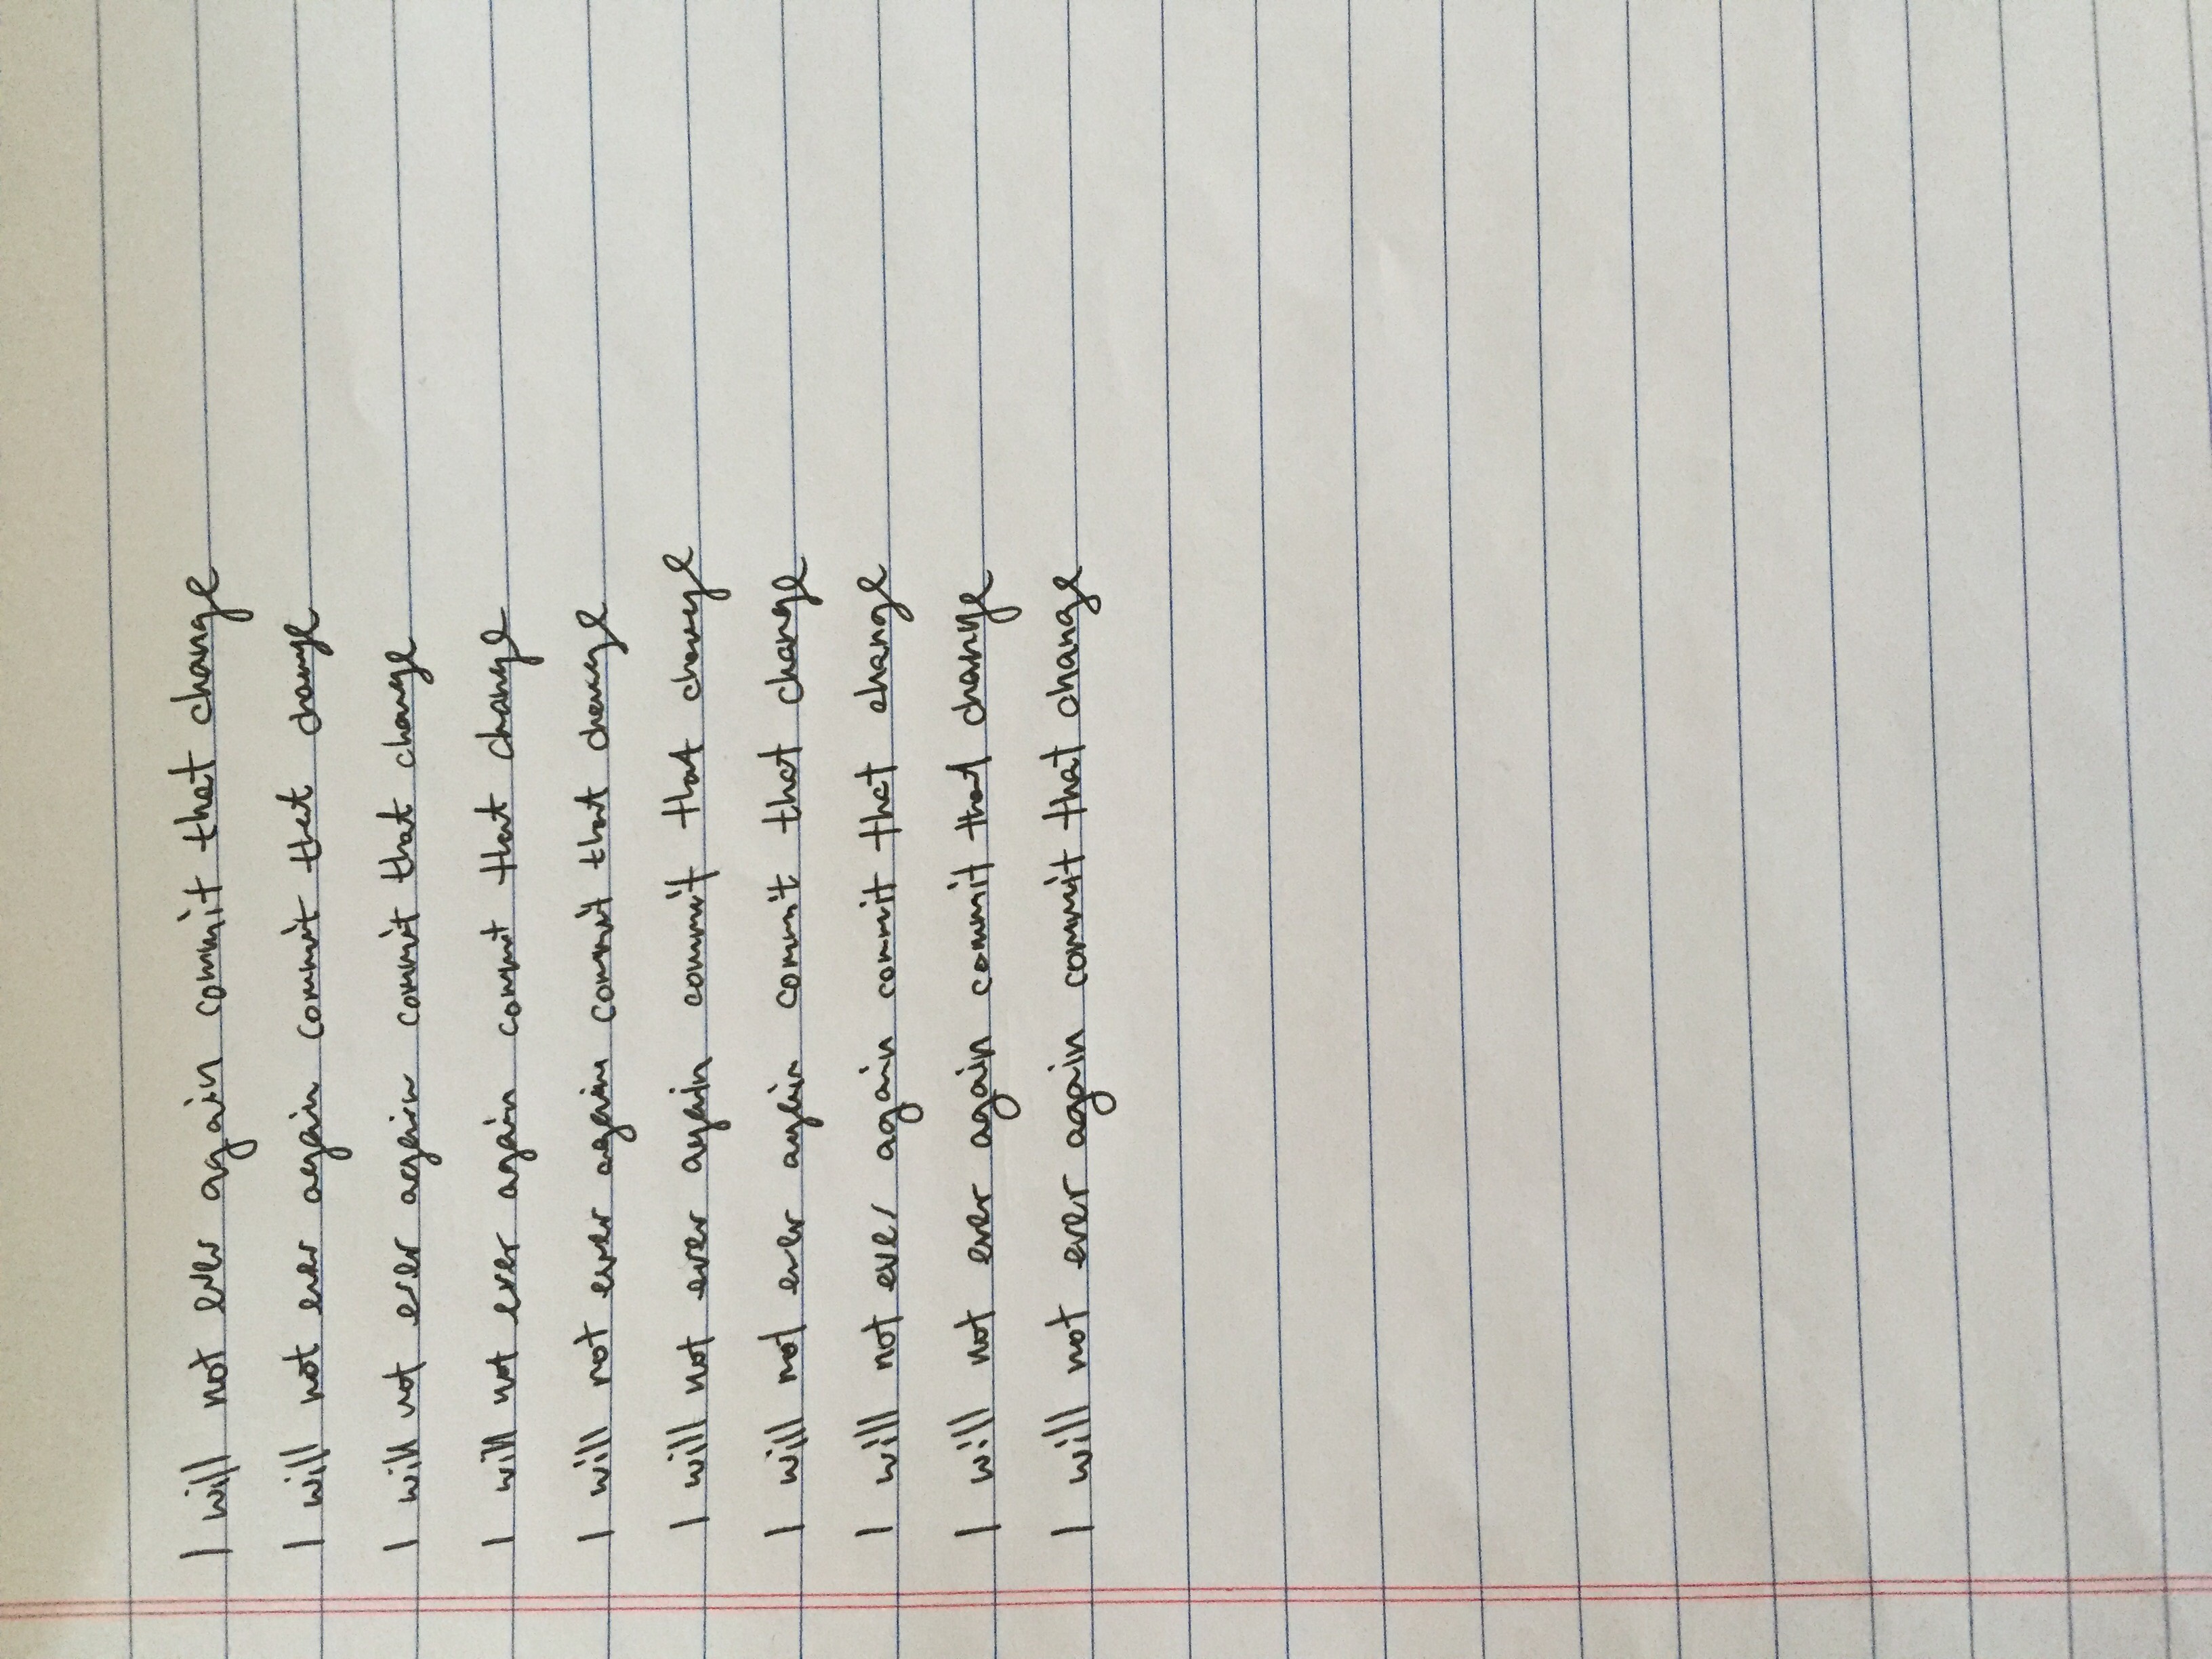 I will not ever again commit that change
I will not ever again commit that change
I will not ever again commit that change
I will not ever again commit that change
I will not ever again commit that change
I will not ever again commit that change
I will not ever again commit that change
I will not ever again commit that change
I will not ever again commit that change
I will not ever again commit that change